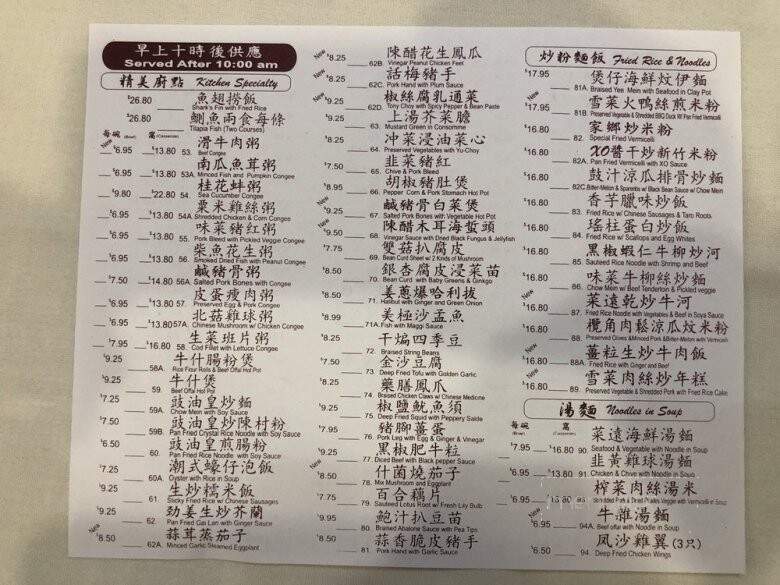 早上十時後供應
Served After 10:00 am
精美廚點 Kitchen Specialty
$26.80 魚翅撈飯
Shark's Fin with Fried Rice
$26.80 鯽魚兩食每條
Tilapia Fish (Two Courses)
每碗 (Bowl) 窩 (Casserole)
New $6.95 $13.80 53. 滑牛肉粥
Beef Congee
$6.95 $13.80 53A. 南瓜魚茸粥
Minced Fish and Pumpkin Congee
$9.80 $22.80 54. 桂花蚌粥
Sea Cucumber Congee
$6.95 $13.80 54A. 粟米雞絲粥
Shredded Chicken & Corn Congee
$6.95 $13.80 55. 味菜豬紅粥
Pork Bleed with Pickled Veggie Congee
$6.95 $13.80 56. 柴魚花生粥
Smoked Dried Fish with Peanut Congee
$7.50 $14.80 56A. 鹹豬骨粥
Salted Pork Bones with Congee
$6.95 $13.80 57. 皮蛋瘦肉粥
Preserved Egg & Pork Congee
$6.95 $13.80 57A. 北菇雞球粥
Chinese Mushroom w/ Chicken Congee
$6.95 $13.80 58. 生菜班片粥
Cod Fillet with Lettuce Congee
$9.25 58A. 牛什腸粉煲
Rice Flour Rolls & Beef Offal Hot Pot
$9.25 59. 牛什煲
Beef Offal Hot Pot
$7.25 59A. 豉油皇炒麵
Chow Mein with Soy Sauce
$7.50 59B. 豉油皇炒陳村粉
Pan Fried Crystal Rice Noodle with Soy Sauce
$6.50 60. 豉油皇煎腸粉
Pan Fried Rice Noodle with Soy Sauce
$7.25 60A. 潮式蠔仔泡飯
Oyster with Rice in Soup
61. 生炒糯米飯
Sticky Fried Rice w/ Chinese Sausages
62. 劲姜生炒芥蘭
Pan Fried Gai Lan with Ginger Sauce
New $8.50 62A. 蒜茸蒸茄子
Minced Garlic Steamed Eggplant
New $8.25 62B. 陳醋花生鳳瓜
Vinegar Peanut Chicken Feet
New $8.25 62C. 話梅豬手
Pork Hand with Plum Sauce
New 62D. 椒絲腐乳通菜
Tony Choy with Spicy Pepper & Bean Paste
63. 上湯芥菜膽
Mustard Green in Consomme
$8.25 64. 冲菜浸油菜心
Preserved Vegetables with Yu-Choy
65. 韭菜豬紅
Chive & Pork Bleed
66. 胡椒豬肚煲
Pepper Corn & Pork Stomach Hot Pot
New $9.25 67. 鹹豬骨白菜煲
Salted Pork Bones with Vegetable Hot Pot
New $9.50 68. 陳醋木耳海蜇頭
Vinegar Sauce with Dried Black Fungus & Jellyfish
$7.75 69. 雙菇扒腐皮
Bean Curd Sheet w/ 2 Kinds of Mushroom
$8.50 70. 銀杏腐皮浸菜苗
Bean Curd with Baby Greens & Ginkgo
71. 姜蔥爆哈利拔
Halibut with Ginger and Green Onion
$8.99 71A. 美極沙孟魚
Fish with Maggi Sauce
72. 干煸四季豆
Braised String Beans
$7.50 73. 金沙豆腐
Deep Fried Tofu with Golden Garlic
$8.25 74. 藥膳鳳瓜
Braised Chicken Claws w/ Chinese Medicine
$9.25 75. 椒鹽魷魚須
Deep Fried Squid with Peppery Salde
$7.95 76. 豬腳薑蛋
Pork Leg with Egg & Ginger & Vinegar
$9.25 77. 黑椒肥牛粒
Diced Beef with Black pepper Sauce
New $8.50 78. 什菌燒茄子
Mix Mushroom and Eggplant
$7.25 79. 百合藕片
Sauteed Lotus Root w/ Fresh Lily Bulb
$9.95 80. 鮑汁扒豆苗
Braised Abalone Sauce with Pea Tips
$8.50 81. 蒜香脆皮豬手
Pork Hand with Garlic Sauce
炒粉麵飯 Fried Rice & Noodles
New $17.95 81A. 煲仔海鮮炆伊麵
Braised Yee Mein with Seafood in Clay Pot
New $17.95 81B. 雪菜火鴨絲煎米粉
Preserved Vegetable & Shredded BBQ Duck W/ Pan Fried Vermicelli
$16.80 82. 家鄉炒米粉
Special Fried Vermicelli
$16.80 82A. XO醬干炒新竹米粉
Pan Fried Vermicelli with XO Sauce
$16.80 82C. 鼓汁涼瓜排骨炒麵
Bitter-Melon & Spareribs w/ Black Bean Sauce w/ Chow Mein
$16.80 83. 香芋臘味炒飯
Fried Rice w/ Chinese Sausages & Taro Roots
$16.80 84. 瑤柱蛋白炒飯
Fried Rice w/ Scallops and Egg Whites
$16.80 85. 黑椒蝦仁牛柳炒河
Sauteed Rice Noodle with Shrimp and Beef
$16.80 86. 味菜牛柳絲炒麵
Chow Mein w/ Beef Tenderloin & Pickled veggie
$16.80 87. 菜遠乾炒牛河
Fried Rice Noodle with Vegetables & Beef in Soya Sauce
New $16.80 88. 欖角肉鬆涼瓜炆米粉
Preserved Olives & Minced Pork & Bitter-Melon with Vermicelli
New $16.80 88A. 薑粒生炒牛肉飯
Fried Rice with Ginger and Beef
$16.80 89. 雪菜肉絲炒年糕
Preserved Vegetable & Shredded Pork with Fried Rice Cake
湯麵 Noodles in Soup
每碗 (Bowl) 窩 (Casserole)
$7.95 $16.80 90. 菜遠海鮮湯麵
Seafood & Vegetable with Noodle in Soup
$6.95 $13.80 91. 韭黃雞球湯麵
Chicken & Chive with Noodle in Soup
$6.95 $13.80 93. 榨菜肉絲湯米
Shredded Pork & Dried Pickles Veggie with Vermicelli in Soup
New $6.95 94. 牛雜湯麵
Beef offal with Noodle in Soup
$6.50 94A. 凤沙雞翼 (3只)
Deep Fried Chicken Wings